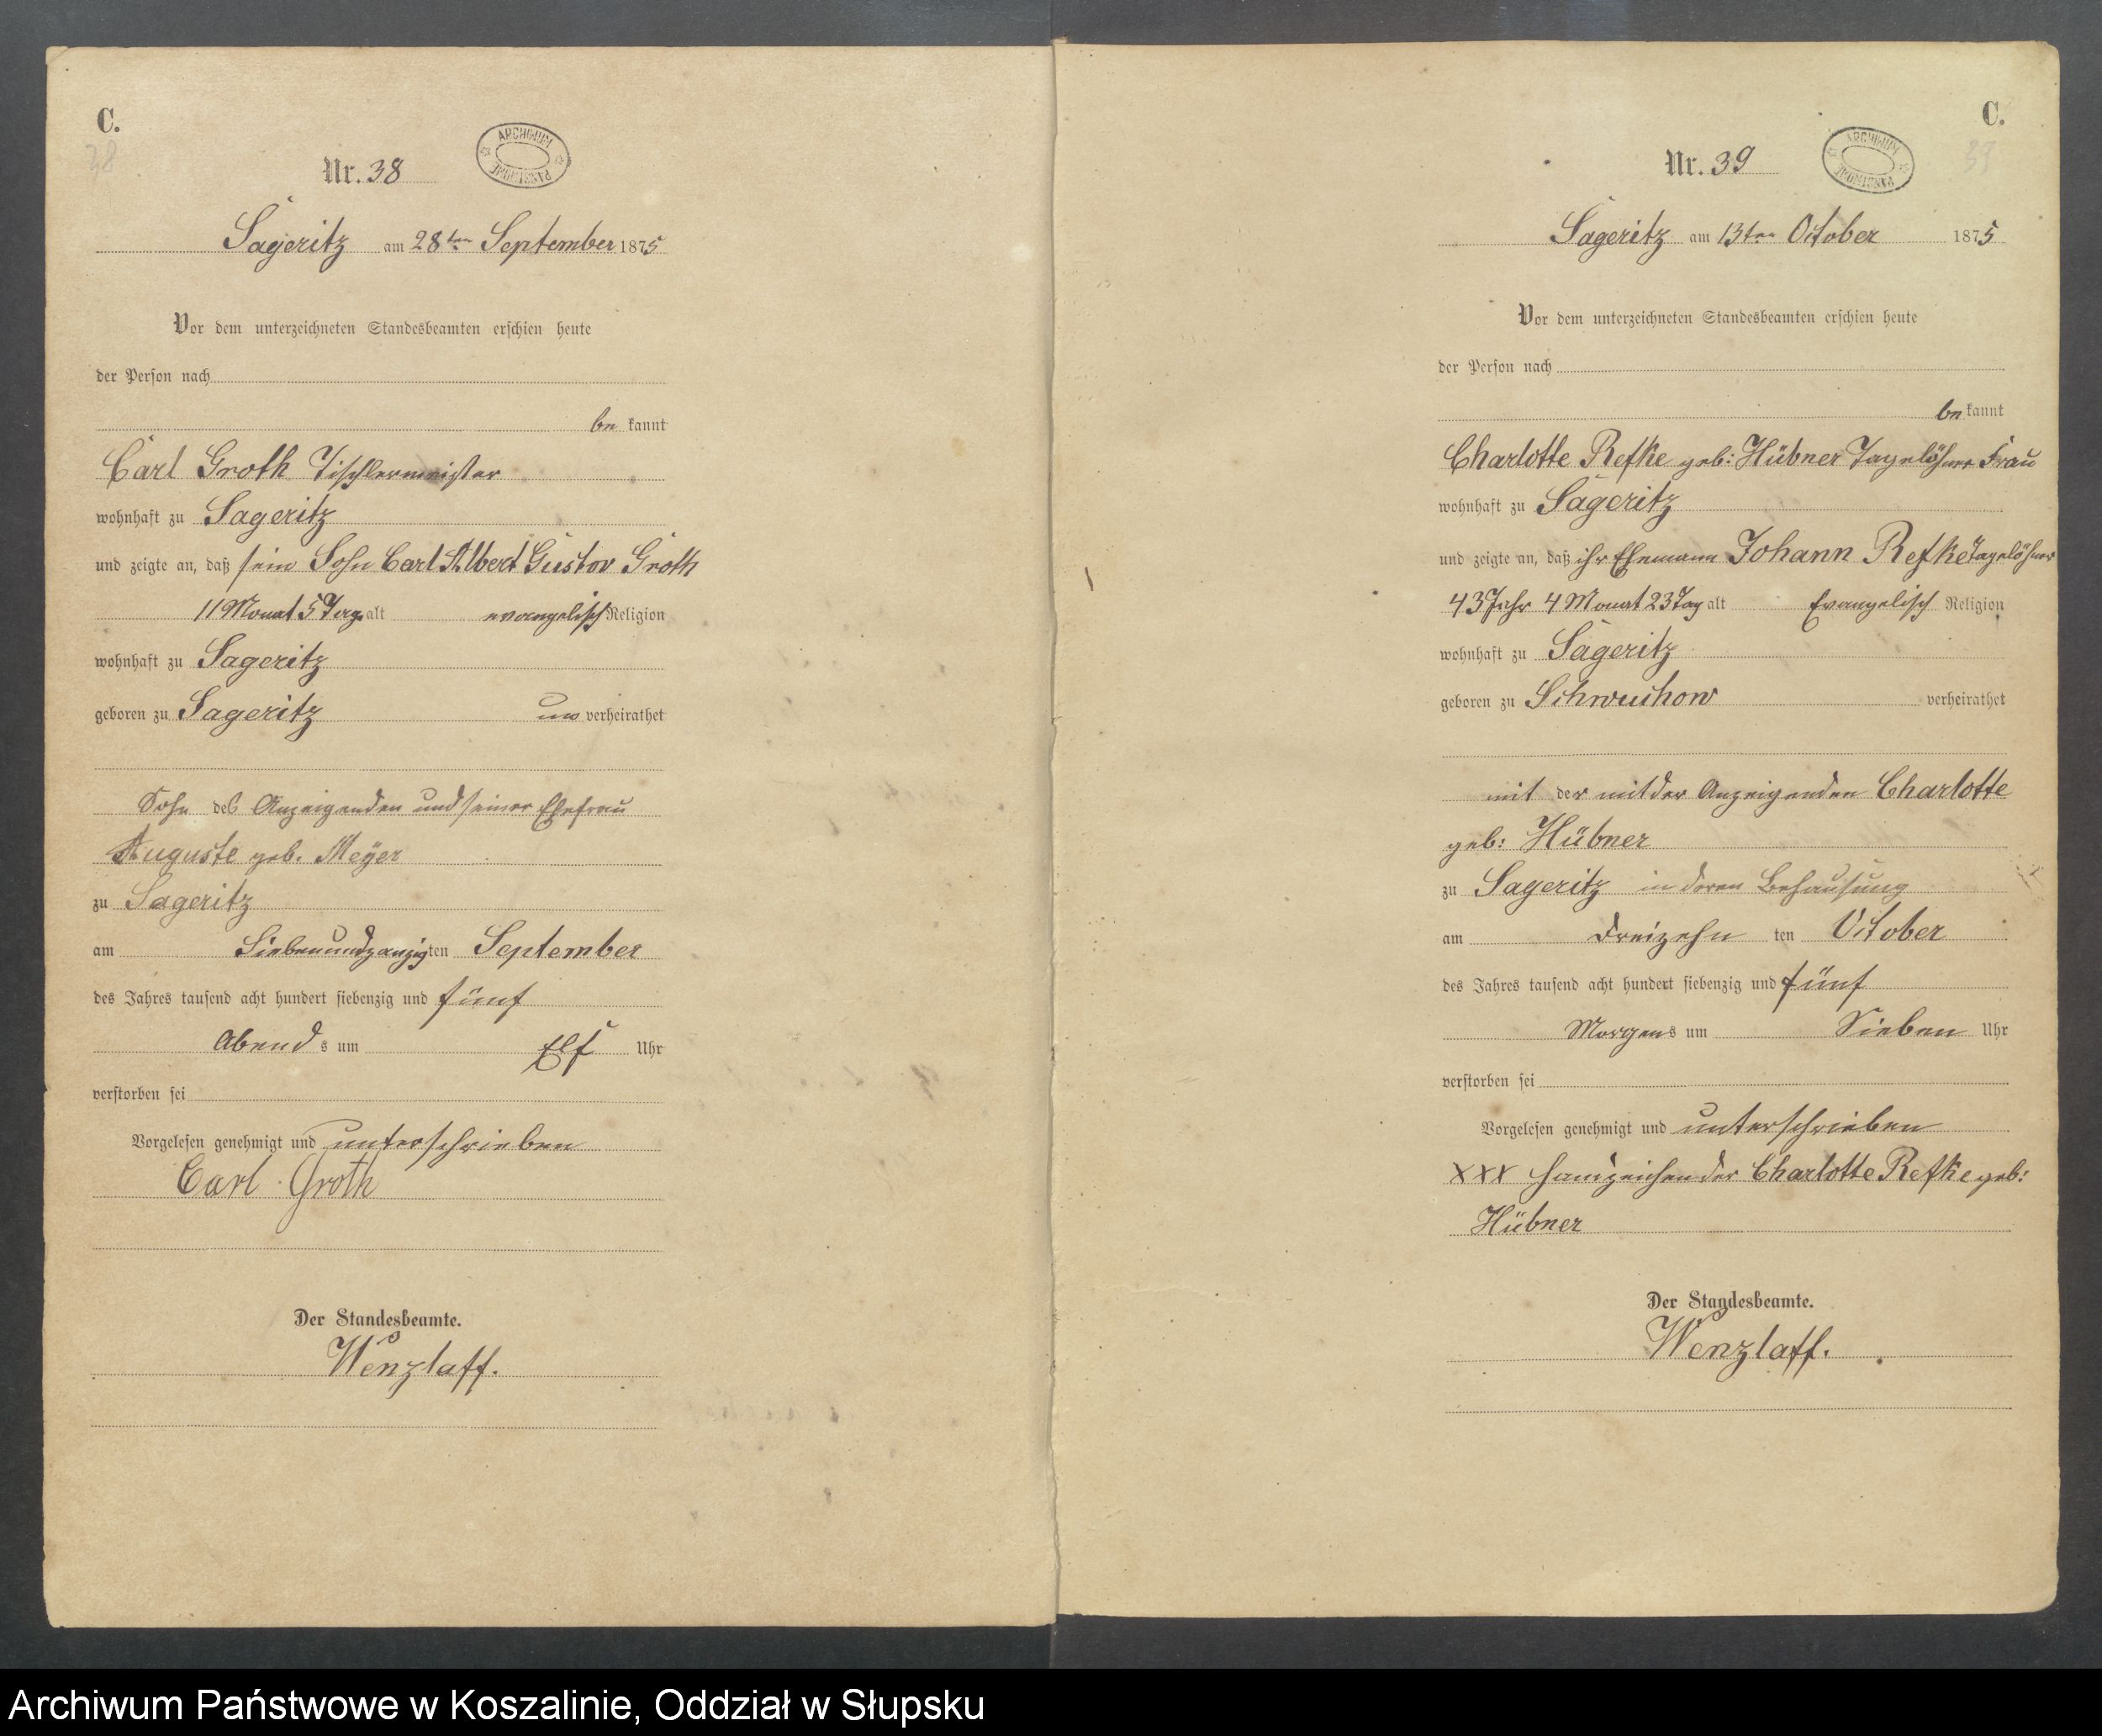 C.
38
Nr. 38
ARCHIWUM PAŃSTWOWE
Sageritz am 28ten September 1875
Vor dem unterzeichneten Standesbeamten erschien heute
der Person nach
be kannt
Carl Groth Tischlermeister
wohnhaft zu Sageritz
und zeigte an, daß sein Sohn Carl Albert Gustav Groth
11 Monat 5 Tag alt evangelisch Religion
wohnhaft zu Sageritz
geboren zu Sageritz un verheirathet
Sohn des Anzeigenden und seiner Ehefrau
Auguste geb. Meÿer
zu Sageritz
am Siebenundzanzigten September
des Jahres tausend acht hundert siebenzig und fünf
Abend s um Elf Uhr
verstorben sei
Vorgelesen genehmigt und unterschrieben
Carl Groth
Der Standesbeamte.
Wenzlaff.
C.
39
Nr. 39
ARCHIWUM PAŃSTWOWE
Sageritz am 13ten October 1875
Vor dem unterzeichneten Standesbeamten erschien heute
der Person nach
be kannt
Charlotte Refke geb: Hübner Tagelöhner Frau
wohnhaft zu Sageritz
und zeigte an, daß ihr Ehemann Johann Refke Tagelöhner
43 Jahr 4 Monat 23 Tag alt Evangelisch Religion
wohnhaft zu Sageritz
geboren zu Schwuchow verheirathet
mit der mit der Anzeigenden Charlotte
geb: Hübner
zu Sageritz in deren Behausung
am Dreizehn ten October
des Jahres tausend acht hundert siebenzig und fünf
Morgens um Sieben Uhr
verstorben sei
Vorgelesen genehmigt und unterschrieben
XXX Handzeichen der Charlotte Refke geb:
Hübner
Der Standesbeamte.
Wenzlaff.
Archiwum Państwowe w Koszalinie, Oddział w Słupsku